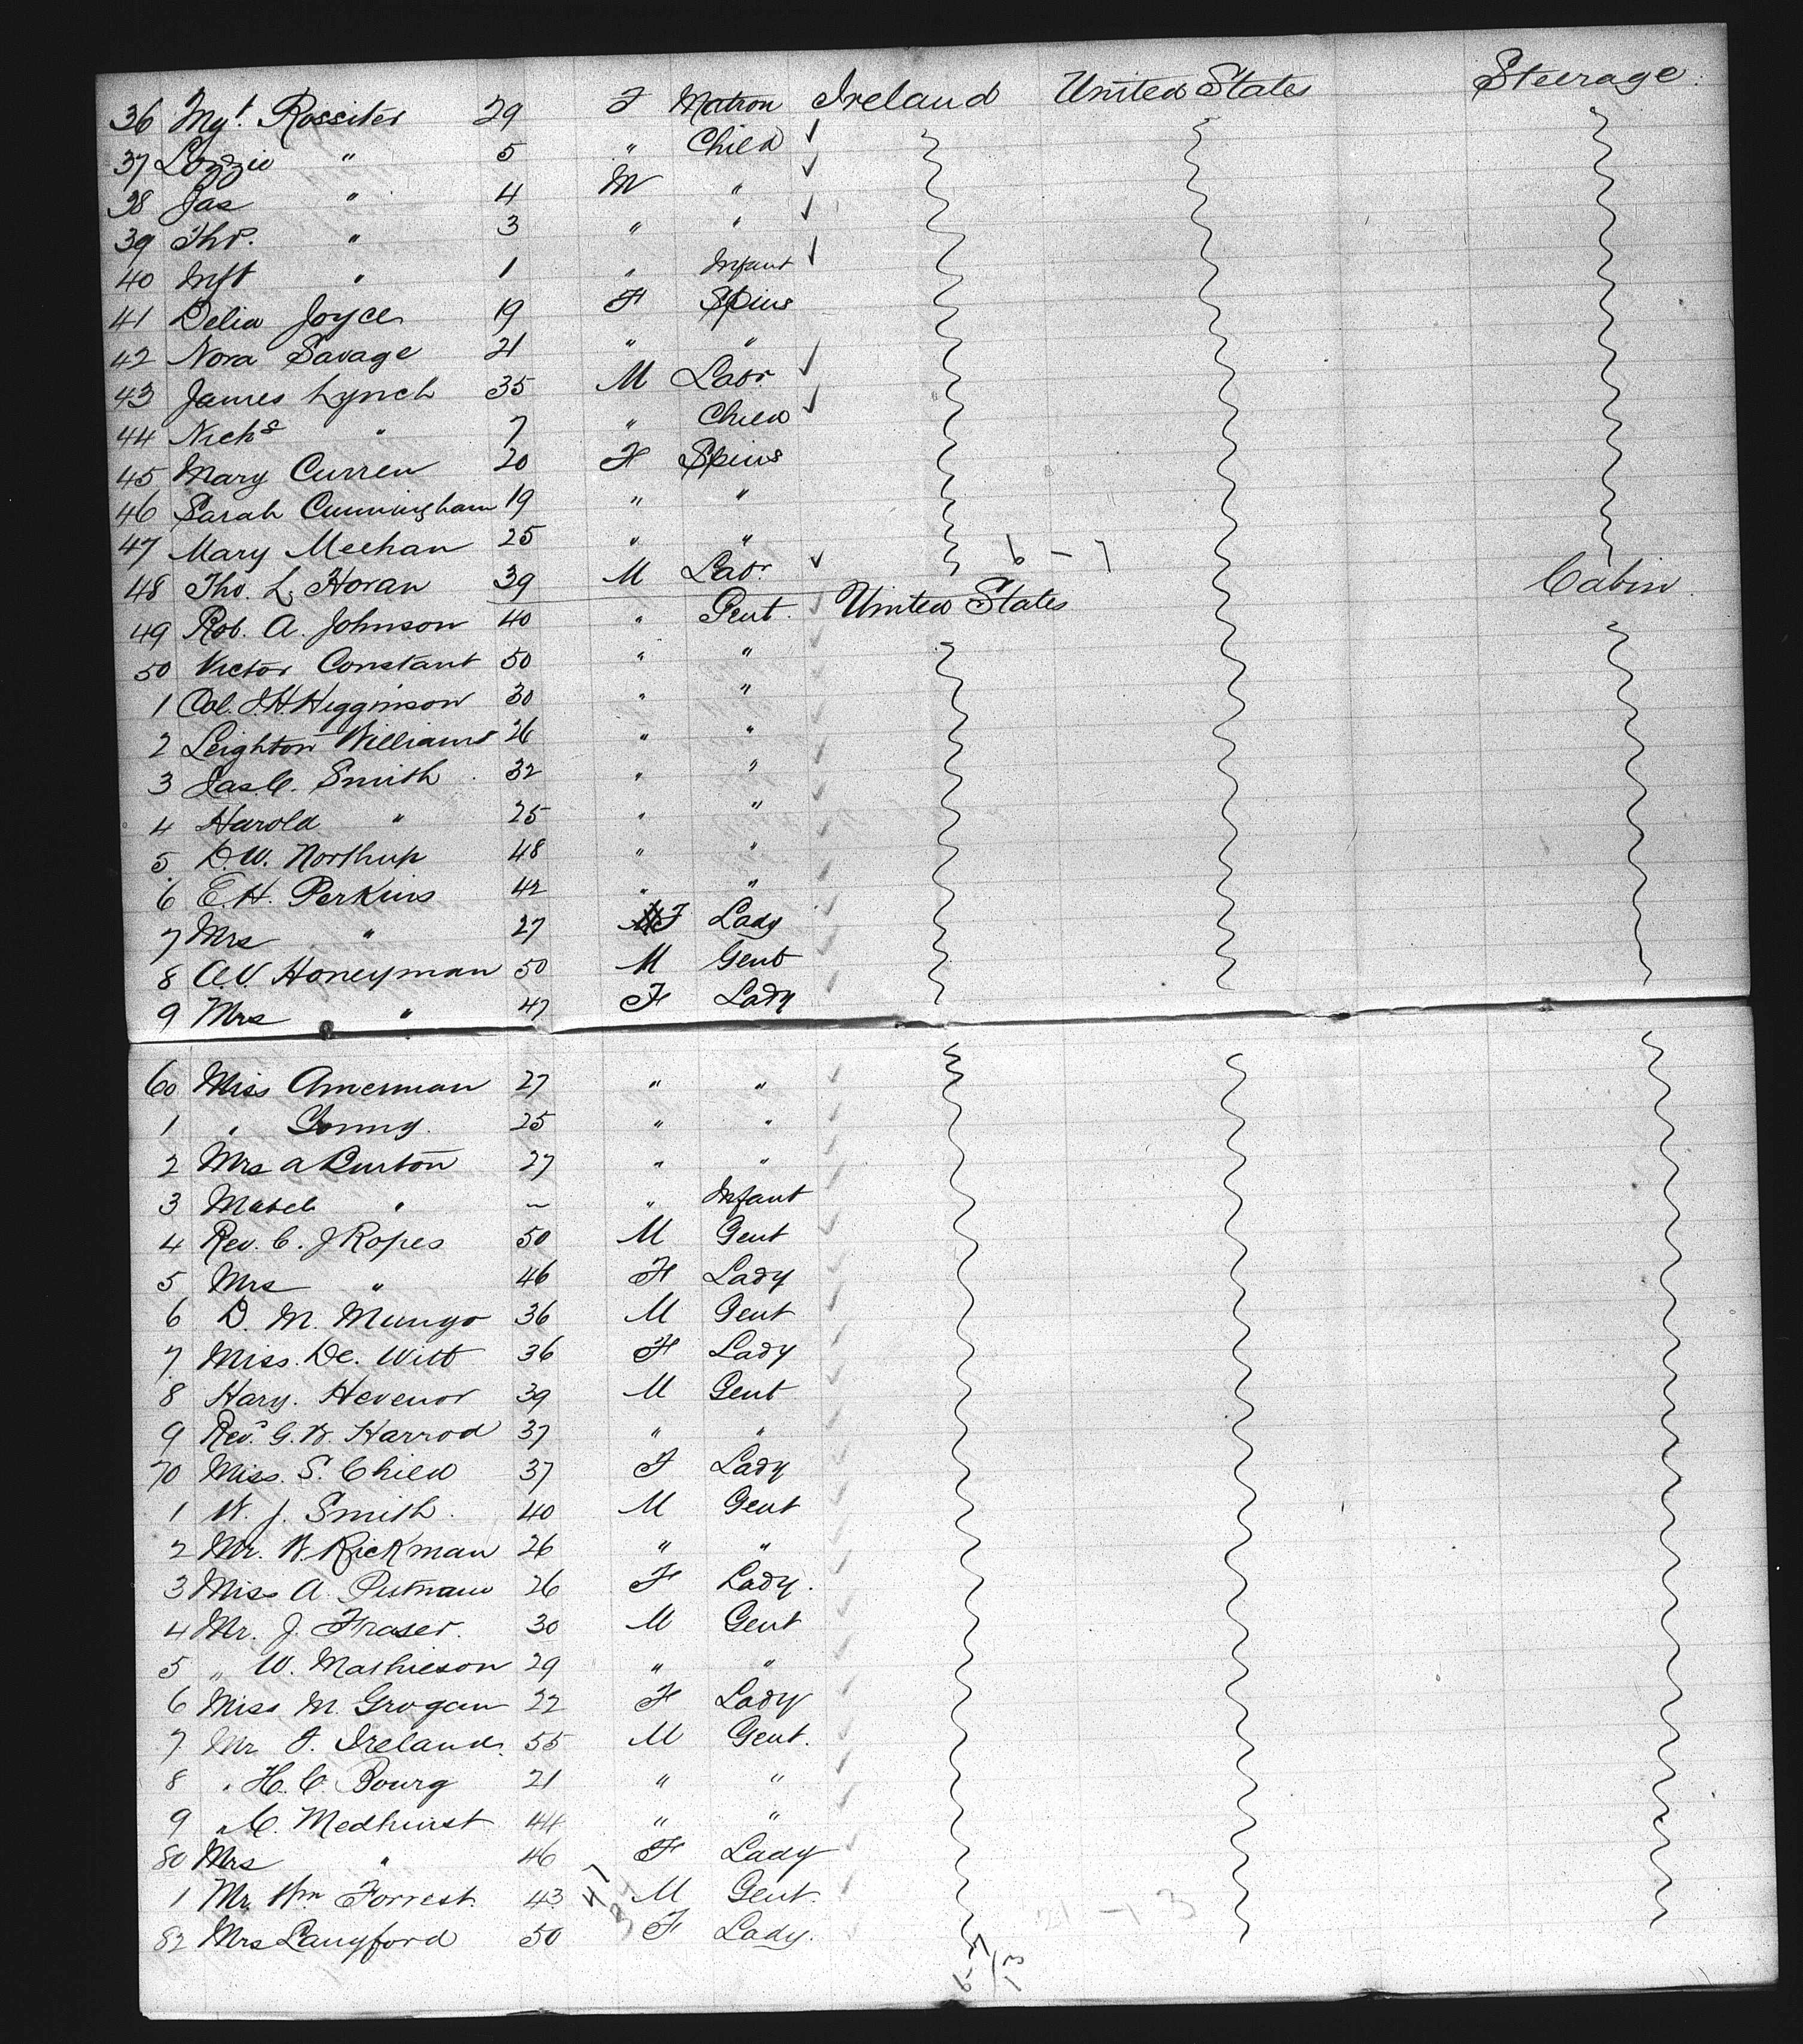 36 Mgt. Rossiter 29 F Matron Ireland United States Steerage
37 Lizzie " 5 " Child ✓
38 Jas " 4 M " ✓
39 Tho. " 3 " " ✓
40 Inft " 1 " Infant ✓
41 Delia Joyce 19 F Spins
42 Nora Savage 21 " "
43 James Lynch 35 M Labr. ✓
44 Nichs " 7 " Child ✓
45 Mary Curren 20 F Spins
46 Sarah Cunningham 19 " "
47 Mary Meehan 25 " " 6 - 7
48 Tho. L. Horan 39 M Labr. ✓ Cabin
49 Rob. A. Johnson 40 " Gent. United States
50 Victor Constant 50 " "
1 Col. J. H. Higginson 30 " "
2 Leighton Williams 26 " "
3 Jas. C. Smith 32 " "
4 Harold " 25 " "
5. D. W. Northup 48 " "
6 E. H. Perkins 42 " "
7 Mrs " 27 F Lady
8 A. V. Honeyman 50 M Gent
9 Mrs " 47 F Lady
60 Miss Amerman 27 " "
1 " 25 " "
2 Mrs A Burton 27 " "
3 Mabel " ~ " Infant
4 Rev. C. J Ropes 50 M Gent
5 Mrs " 46 F Lady
6 D. M. Mungo 36 M Gent
7 Miss. De. Witt 36 F Lady
8 Harry. Hevenor 39 M Gent
9 Rev. G. W. Harrod 37 " "
70 Miss. S. Child 37 F Lady
1 W. J. Smith. 40 M Gent
2 Mr. W. Rickman 26 " "
3 Miss A. Putnam 26 F Lady.
4 Mr. J. Fraser. 30 M Gent
5 " W. Mathieson 29 " "
6 Miss M. Grogan 22 F Lady
7 Mr J. Ireland. 55 M Gent.
8 " H. C. Bourg 21 " "
9 " C. Medhurst 44 " "
80 Mrs " 46 F Lady
1 Mr. Wm Forrest. 43 M Gent.
82 Mrs Langford 50 F Lady.